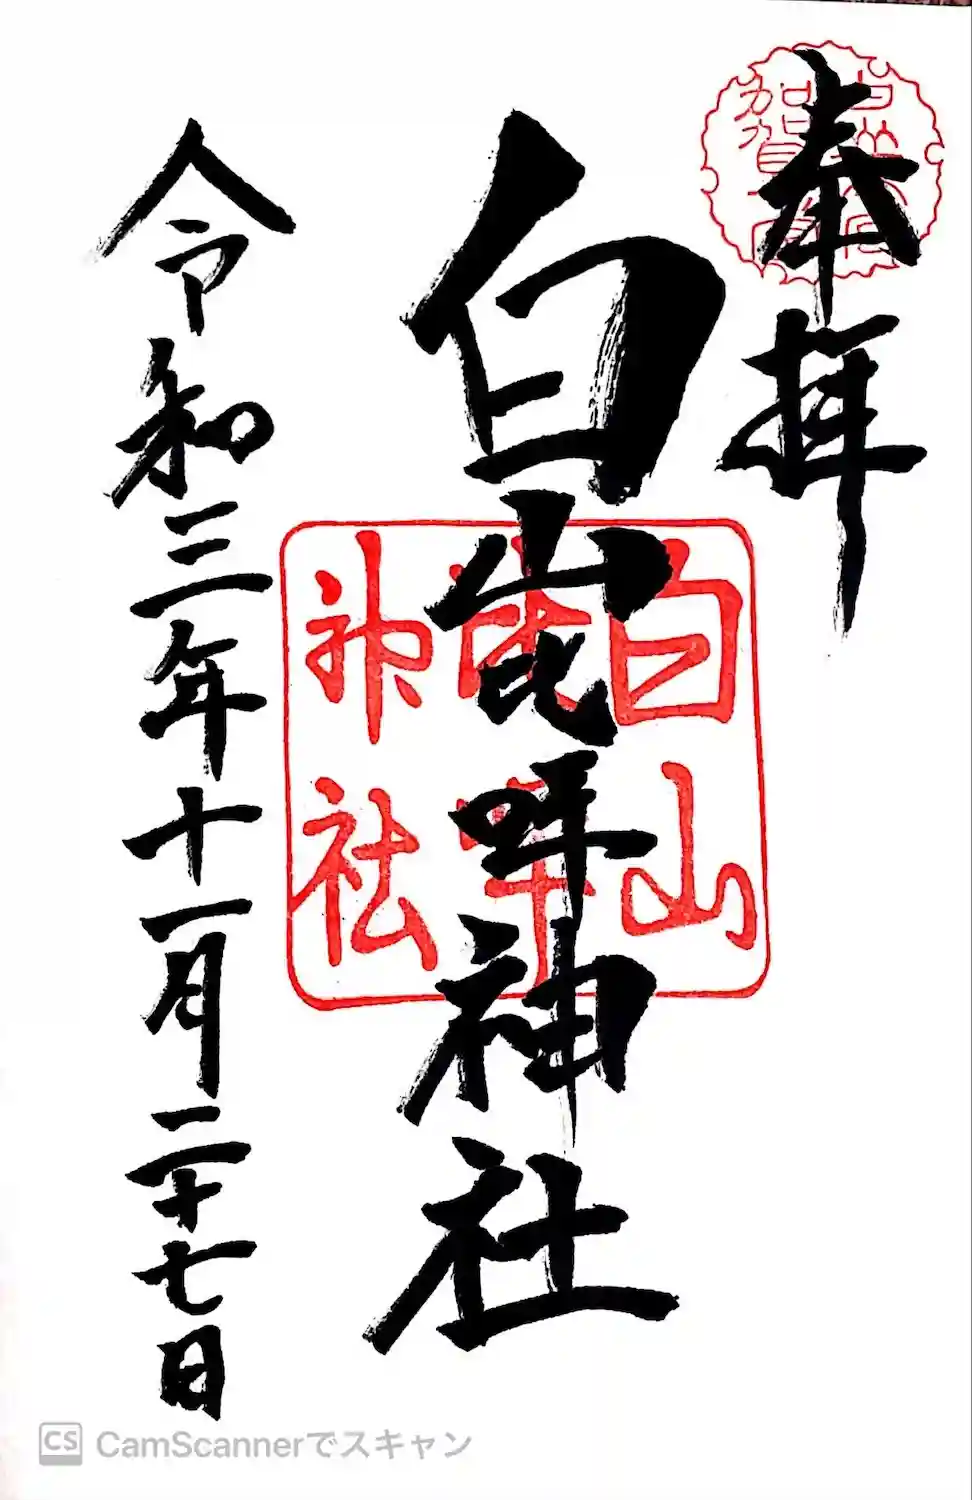 奉拝
白山比咩神社
令和三年十一月二十七日
白山
神社
加賀
CamScannerでスキャン